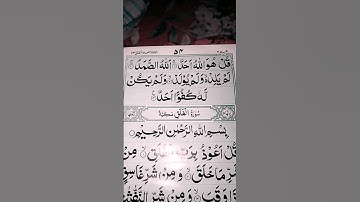 ۵۱۴
قُلْ هُوَ اللّٰهُ اَحَدٌ ۚ اَللّٰهُ الصَّمَدُ ۚ
لَمْ يَلِدْ وَلَمْ يُوْلَدْ ۙ وَلَمْ يَكُنْ
لَّهٗ كُفُوًا اَحَدٌ
سُوْرَةُ الْفَلَقِ مَكِّيَّةٌ
بِسْمِ اللّٰهِ الرَّحْمٰنِ الرَّحِيْمِ
قُلْ اَعُوْذُ بِرَبِّ الْفَلَقِ ۙ مِنْ
شَرِّ مَا خَلَقَ ۙ وَمِنْ شَرِّ غَاسِقٍ
اِذَا وَقَبَ ۙ وَمِنْ شَرِّ النَّفّٰثٰتِ